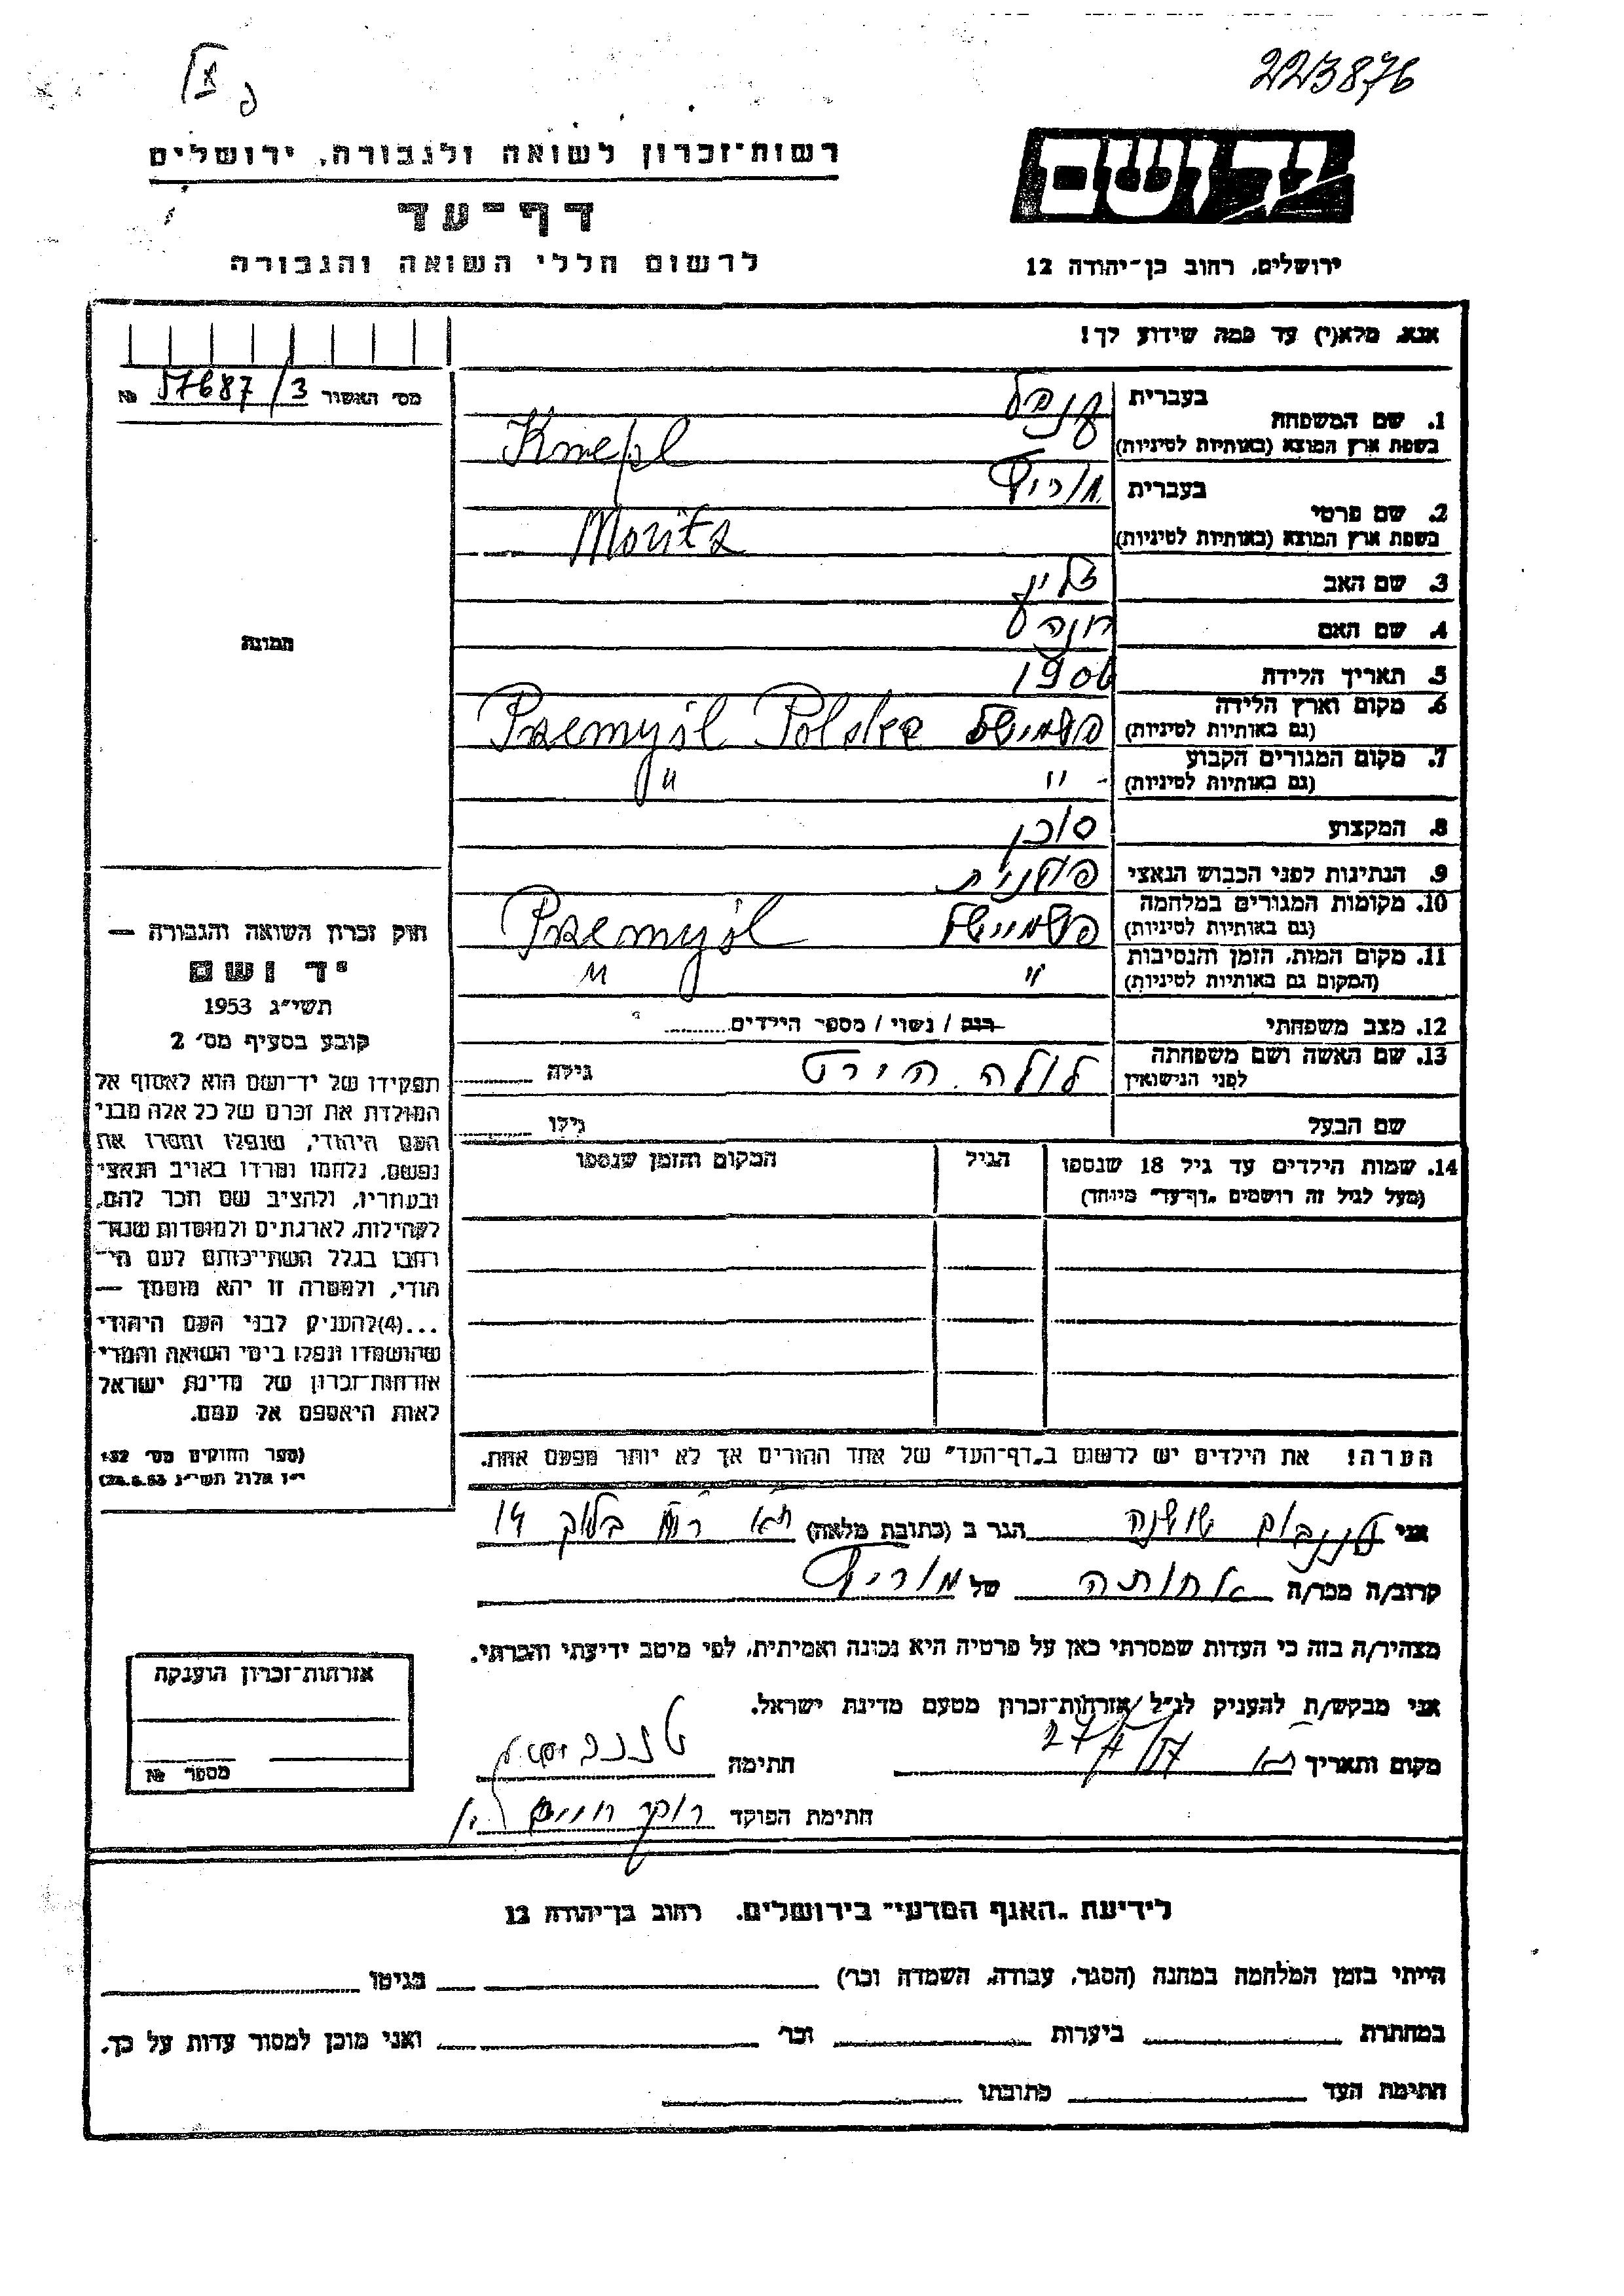 223876
רשות־זכרון לשואה ולגבורה, ירושלים
דף־עד
לרשום חללי השואה והגבורה
יד ושם
ירושלים, רחוב בן־יהודה 12
אנא, מלא(י) עד כמה שידוע לך!
מס׳ האשור 57687/3 №
תמונה
1. שם המשפחה בעברית קנפל
בשפת ארץ המוצא (באותיות לטיניות) Knepl
2. שם פרטי בעברית מוריץ
בשפת ארץ המוצא (באותיות לטיניות) Moritz
3. שם האב זליג
4. שם האם חנה
5. תאריך הלידה 1906
6. מקום וארץ הלידה (גם באותיות לטיניות) פשמישל Przemyśl Polska
7. מקום המגורים הקבוע (גם באותיות לטיניות) " "
8. המקצוע סוכן
9. הנתינות לפני הכבוש הנאצי פולנית
10. מקומות המגורים במלחמה (גם באותיות לטיניות) פשמישל Przemyśl
11. מקום המות, הזמן והנסיבות (המקום גם באותיות לטיניות) " "
12. מצב משפחתי רווק / נשוי / מספר הילדים ?
13. שם האשה ושם משפחתה לפני הנישואין לולה הירט גילה
שם הבעל גילו
14. שמות הילדים עד גיל 18 שנספו הגיל המקום והזמן שנספו
(מעל לגיל זה רושמים „דף־עד" מיוחד)
הערה! את הילדים יש לרשום ב„דף־העד" של אחד ההורים אך לא יותר מפעם אחת.
חוק זכרון השואה והגבורה —
יד ושם
תשי״ג 1953
קובע בסעיף מס׳ 2
תפקידו של יד־ושם הוא לאסוף אל
המולדת את זכרם של כל אלה מבני
העם היהודי, שנפלו ומסרו את
נפשם, נלחמו ומרדו באויב הנאצי
ובעוזריו, ולהציב שם וזכר להם,
לקהילות, לארגונים ולמוסדות שנח־
רבו בגלל השתייכותם לעם הי־
הודי, ולמטרה זו יהא מוסמך —
...(4) להעניק לבני העם היהודי
שהושמדו ונפלו בימי השואה והמרי
אזרחות־זכרון של מדינת ישראל
לאות היאספם אל עמם.
(ספר החוקים מס׳ 132
י״ז אלול תשי״ג 28.8.53)
אני טננבום שושנה הגר ב (כתובת מלאה) בלוק 14
קרוב/ה מכר/ה אחותה של מוריץ
מצהיר/ה בזה כי העדות שמסרתי כאן על פרטיה היא נכונה ואמיתית, לפי מיטב ידיעתי והכרתי.
אני מבקש/ת להעניק לנ״ל אזרחות־זכרון מטעם מדינת ישראל.
מקום ותאריך חתימה
חתימת הפוקד
אזרחות־זכרון הוענקה
מספר №
לידיעת „האגף המדעי" בירושלים. רחוב בן־יהודה 12
הייתי בזמן המלחמה במחנה (הסגר, עבודה, השמדה וכר׳) בגיטו
במחתרת ביערות וכר׳ ואני מוכן למסור עדות על כך.
חתימת העד כתובתו